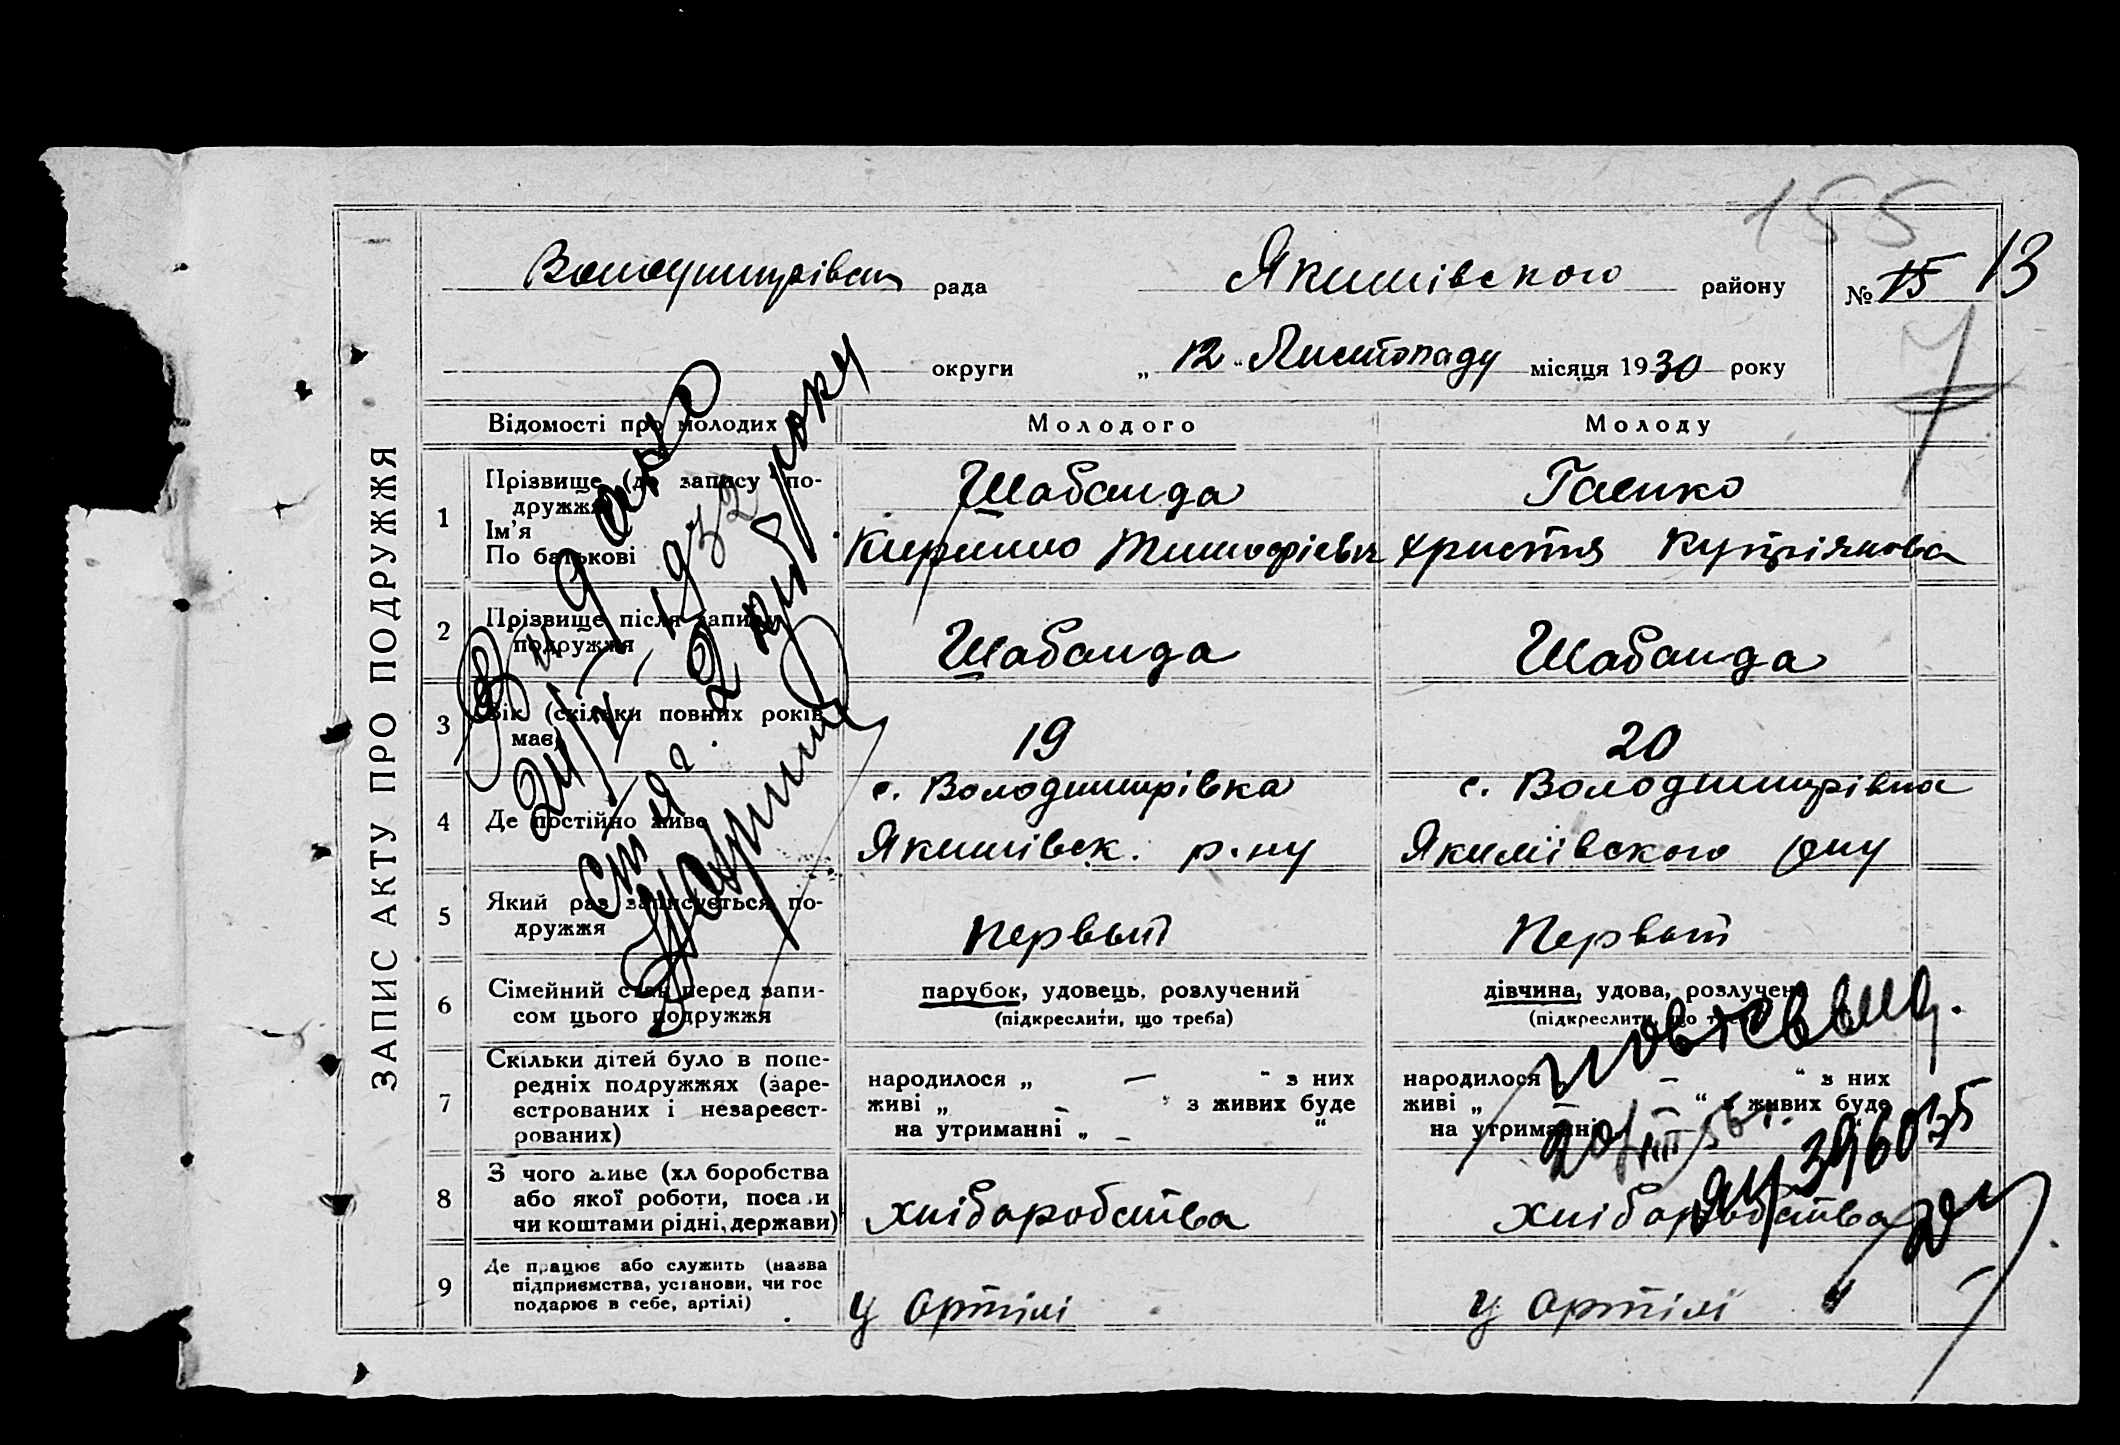 155
Володимирівск рада Якимівского району № 15 13
округи „ 12 “ Листопаду місяця 1930 року
7
ЗАПИС АКТУ ПРО ПОДРУЖЖЯ
Відомості про молодих Молодого Молоду
1 Прізвище (до запису по-
дружжя
Шабанда Гаенко
Ім’я
По батькові
Кирилло Тимофієвич Христя Купріянова
2 Прізвище після запису
подружжя
Шабанда Шабанда
3 Вік (скільки повних років
має)
19 20
4 Де постійно живе
с. Володимирівка с. Володимирівка
Якимівск. р-ну Якимівского р-ну
5 Який раз записується по-
дружжя
первый Первый
6 Сімейний стан перед запи-
сом цього подружжя
парубок, удовець, розлучений дівчина, удова, розлучена
(підкреслити, що треба) (підкреслити, що треба)
7 Скільки дітей було в попе-
редніх подружжях (заре-
єстрованих і незареєст-
рованих)
народилося „ — “ з них народилося „ — “ з них
живі „ — “ з живих буде живі „ — “ з живих буде
на утриманні „ — “ на утриманні „ — “
8 З чого живе (хліборобства
або якої роботи, посади
чи коштами рідні, держави)
хліборобства хліборобства
9 Де працює або служить (назва
підприємства, установи, чи гос
подарює в себе, артілі)
у Артілі у Артілі
1932
396035